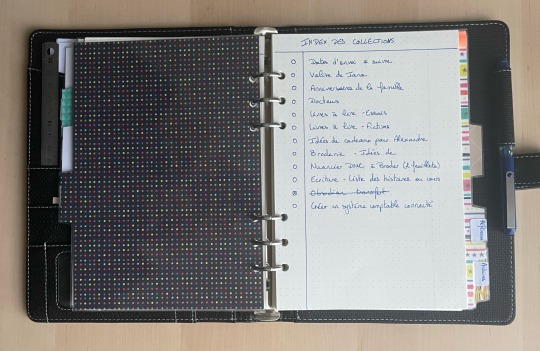 INDEX DES COLLECTIONS
Dates d'envoi à suivre
Valise de Jana
Anniversaires de la famille
Docteurs
Livres à lire - Essais
Livres à lire - Fictions
Idées de cadeaux pour Alexandre
Broderie - Idées de
Nuancier DMC à Broder (2 feuillets)
Ecriture - Liste des histoires en cours
Obsidian transfert
Créer un système comptable connecté